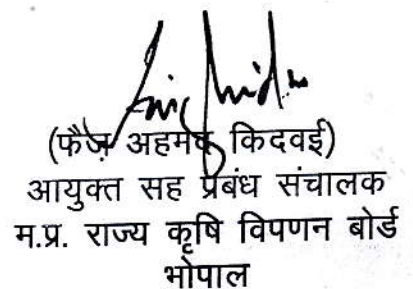 (फैज़ अहमद किदवई)
आयुक्त सह प्रबंध संचालक
म.प्र. राज्य कृषि विपणन बोर्ड
भोपाल